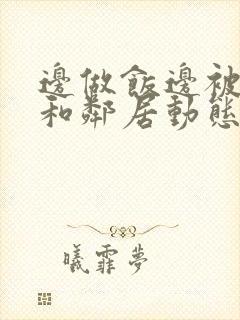 邊做飯邊被
和鄰居動態
曦霏夢